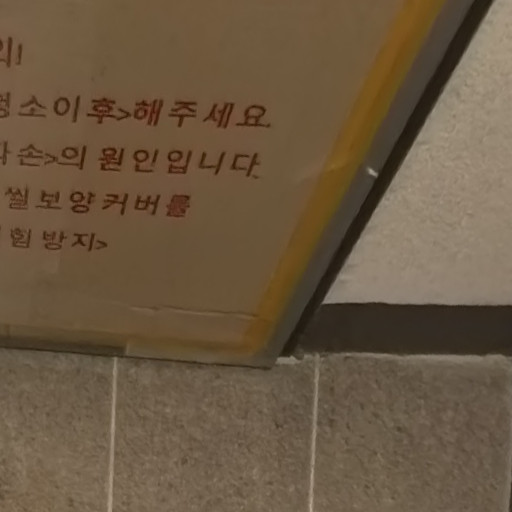 의!
형 소 이 후>해 주 세 요.
파 손>의 원 인 입 니 다.
씰 보 양 커 버 를
험 방 지>